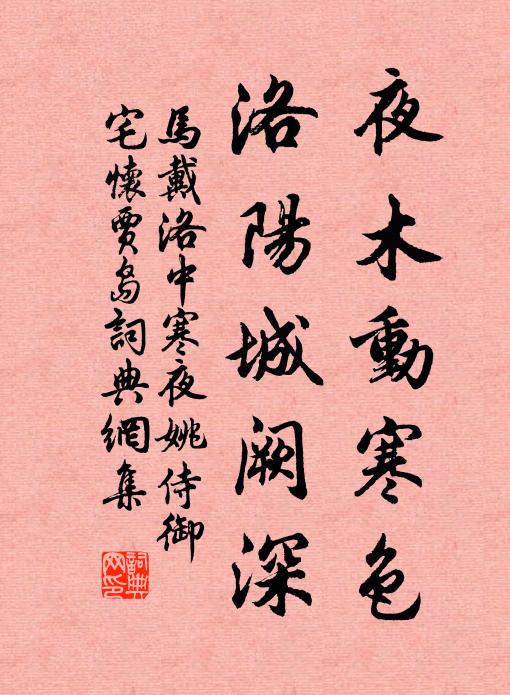 夜木動寒色
洛陽城阙深
馬戴洛中寒夜姚侍御
宅懷賈島詞典網集
詞典
网印